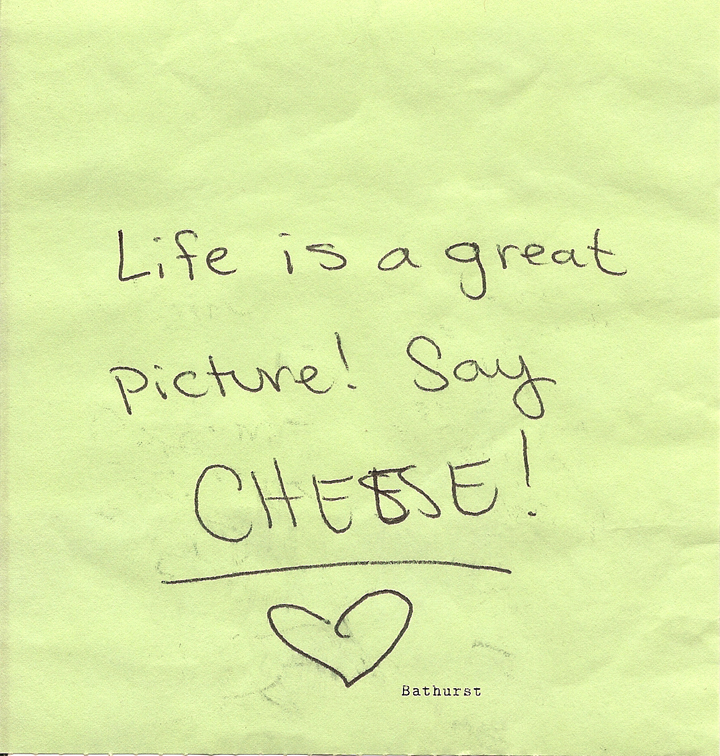 Life is a great
picture! Say
CHEESE!
Bathurst